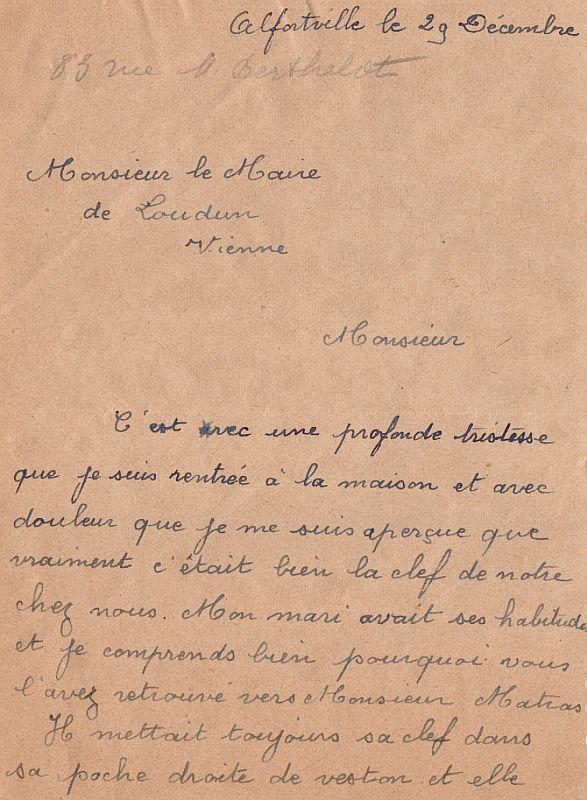 Alfortville le 29 Décembre
83 rue M. Berthelot
Monsieur le Maire
de Loudun
Vienne
Monsieur
C'est avec une profonde tristesse
que je suis rentrée à la maison et avec
douleur que je me suis aperçue que
vraiment c'était bien la clef de notre
chez nous. Mon mari avait ses habitude
et je comprends bien pourquoi vous
l'avez retrouvé vers Monsieur Matras
Il mettait toujours sa clef dans
sa poche droite de veston et elle